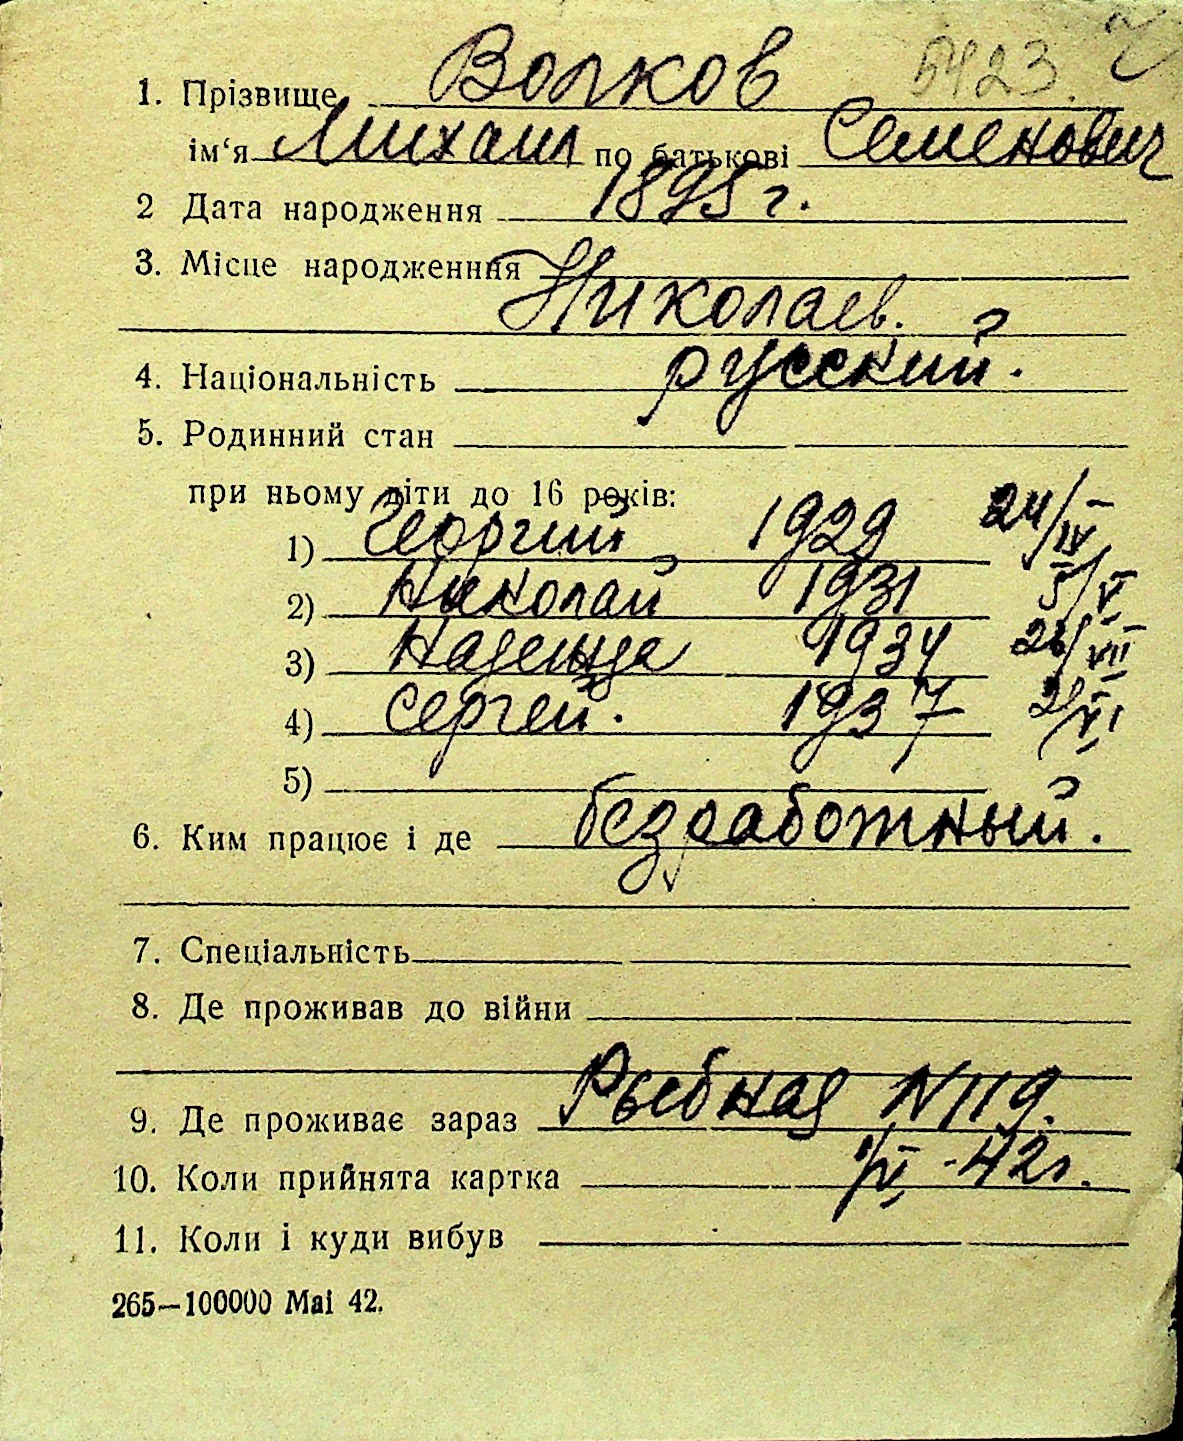 5423
1. Прізвище Волков
ім‘я Михаил по батькові Семенович
2 Дата народження 1895 г.
3. Місце народженння
Николаев.
4. Національність русский.
5. Родинний стан
при ньому діти до 16 років:
1) Георгий 1929 24/IV
2) Николай 1931 5/V
3) Надежда 1934 /VII
4) Сергей. 1937 /VI
5)
6. Ким працює і де безработный.
7. Спеціальність
8. Де проживав до війни
9. Де проживає зараз Рыбная N 119.
10. Коли прийнята картка 1/VI-42г.
11. Коли і куди вибув
265—100000 Mai 42.